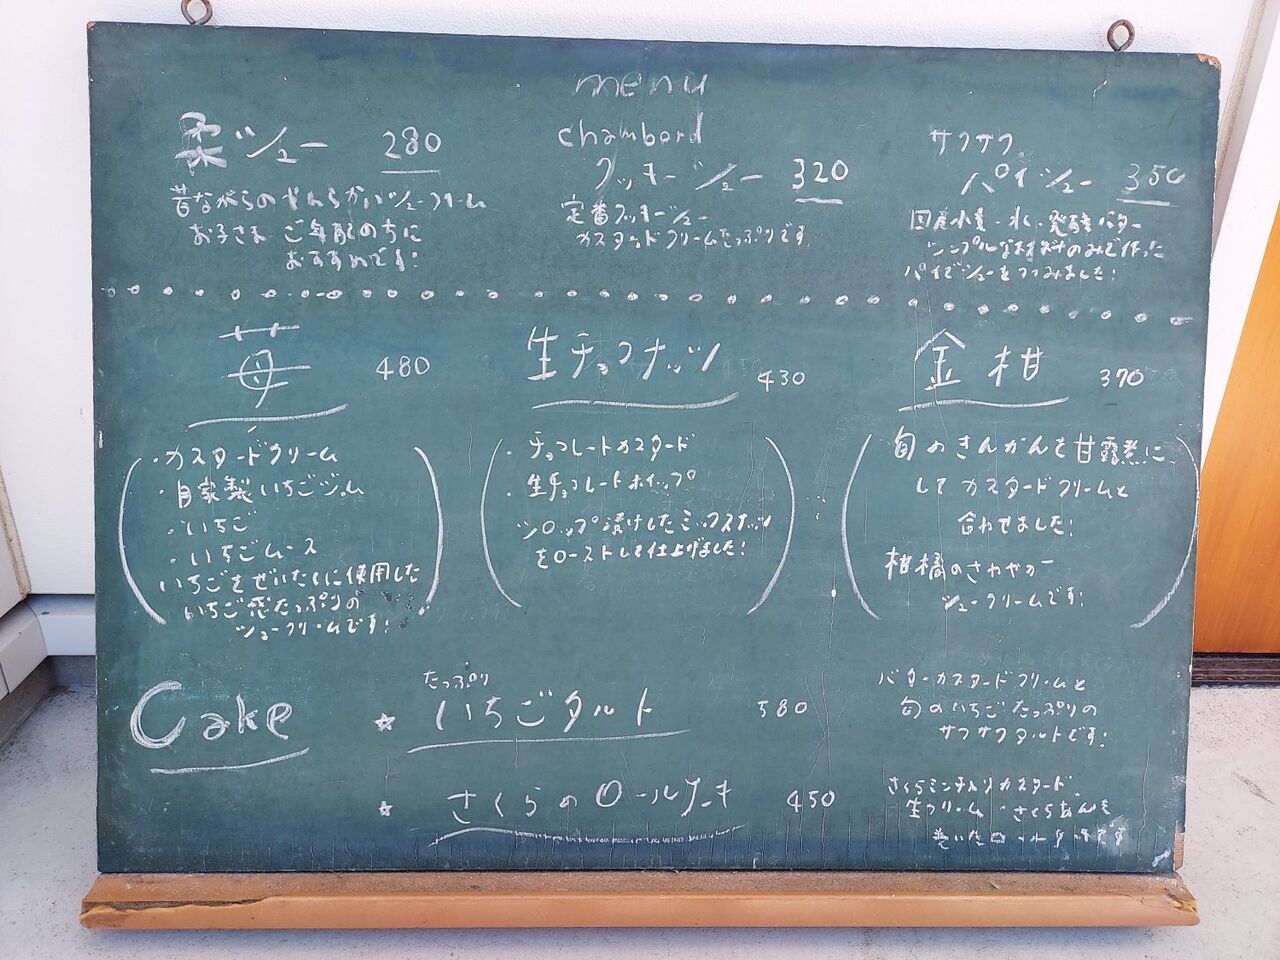 menu
柔シュー 280
昔ながらのやわらかいシュークリーム
お子さま ご年配の方に
おすすめです!
chambord
クッキーシュー 320
定番クッキーシュー
カスタードクリームたっぷりです
サクサク
パイシュー 350
国産小麦・水・発酵バター
シンプルな材料のみで作った
パイでシューをつつみました!
苺 480
・カスタードクリーム
・自家製いちごジャム
・いちご
・いちごムース
いちごをぜいたくに使用した
いちご感たっぷりの
シュークリームです!
生チョコナッツ 430
・チョコレートカスタード
・生チョコレートホイップ
シロップ漬けしたミックスナッツ
をローストして仕上げました!
金柑 370
旬のきんかんを甘露煮に
してカスタードクリームと
合わせました!
柑橘のさわやかー
シュークリームです!
Cake
☆ たっぷり
いちごタルト 580
バターカスタードクリームと
旬のいちごたっぷりの
サクサクタルトです!
☆ さくらのロールケーキ 450
さくらミンチ入りカスタード、
生クリーム・さくらあんを
巻いたロールケーキです